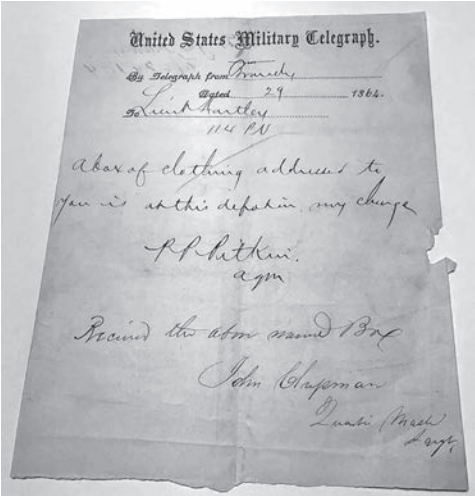 United States Military Telegraph.
By Telegraph from Brandy
Dated 29 1864.
To Lieut Hartley
114 PV
A box of clothing addressed to
you is at this depot in my charge
P P Pitkin.
aqm
Recieved the above named Box
John Chapman
Quarter Mast
Sargt,